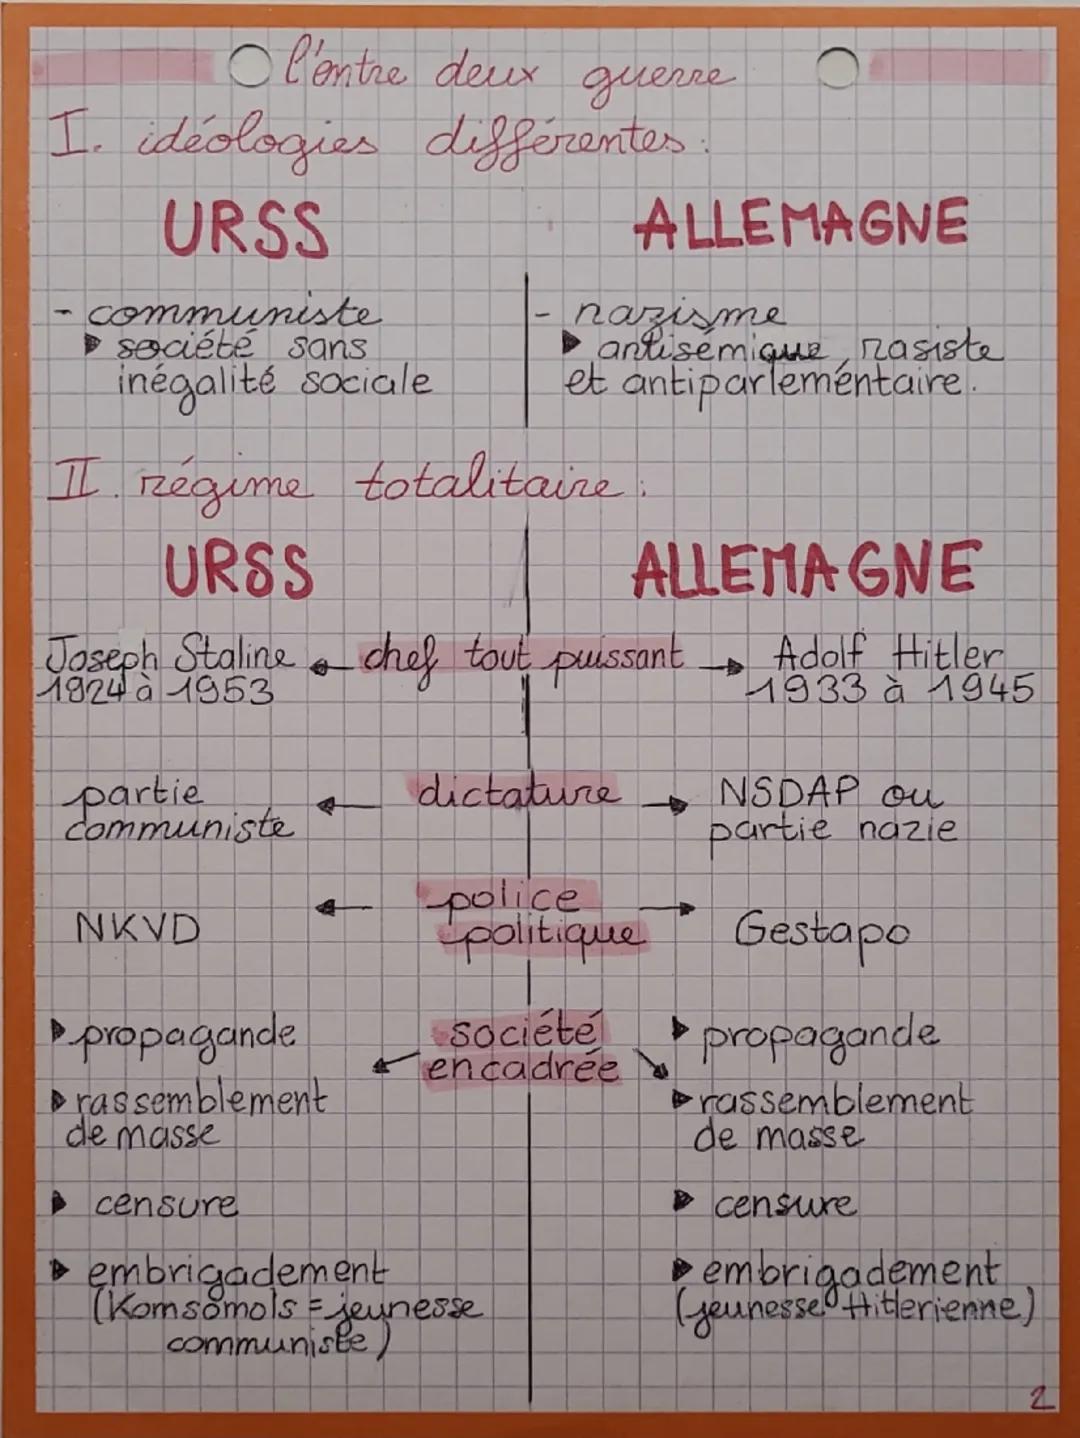 l'entre deux guerre
I. idéologies différentes :
URSS
ALLEMAGNE
- communiste
▶ société sans
inégalité sociale
- nazisme
▶ antisémique, rasiste
et antiparlementaire.
II. régime totalitaire :
URSS
ALLEMAGNE
Joseph Staline ← chef tout puissant → Adolf Hitler
1924 à 1953
1933 à 1945
partie
communiste
← dictature →
NSDAP ou
partie nazie
NKVD
← police →
politique
Gestapo
société
encadrée
▶ propagande
▶ rassemblement
de masse
▶ censure
▶ embrigadement
(Komsomols = jeunesse
communiste)
▶ propagande
▶ rassemblement
de masse
▶ censure
▶ embrigadement
(jeunesse Hitlerienne)
2